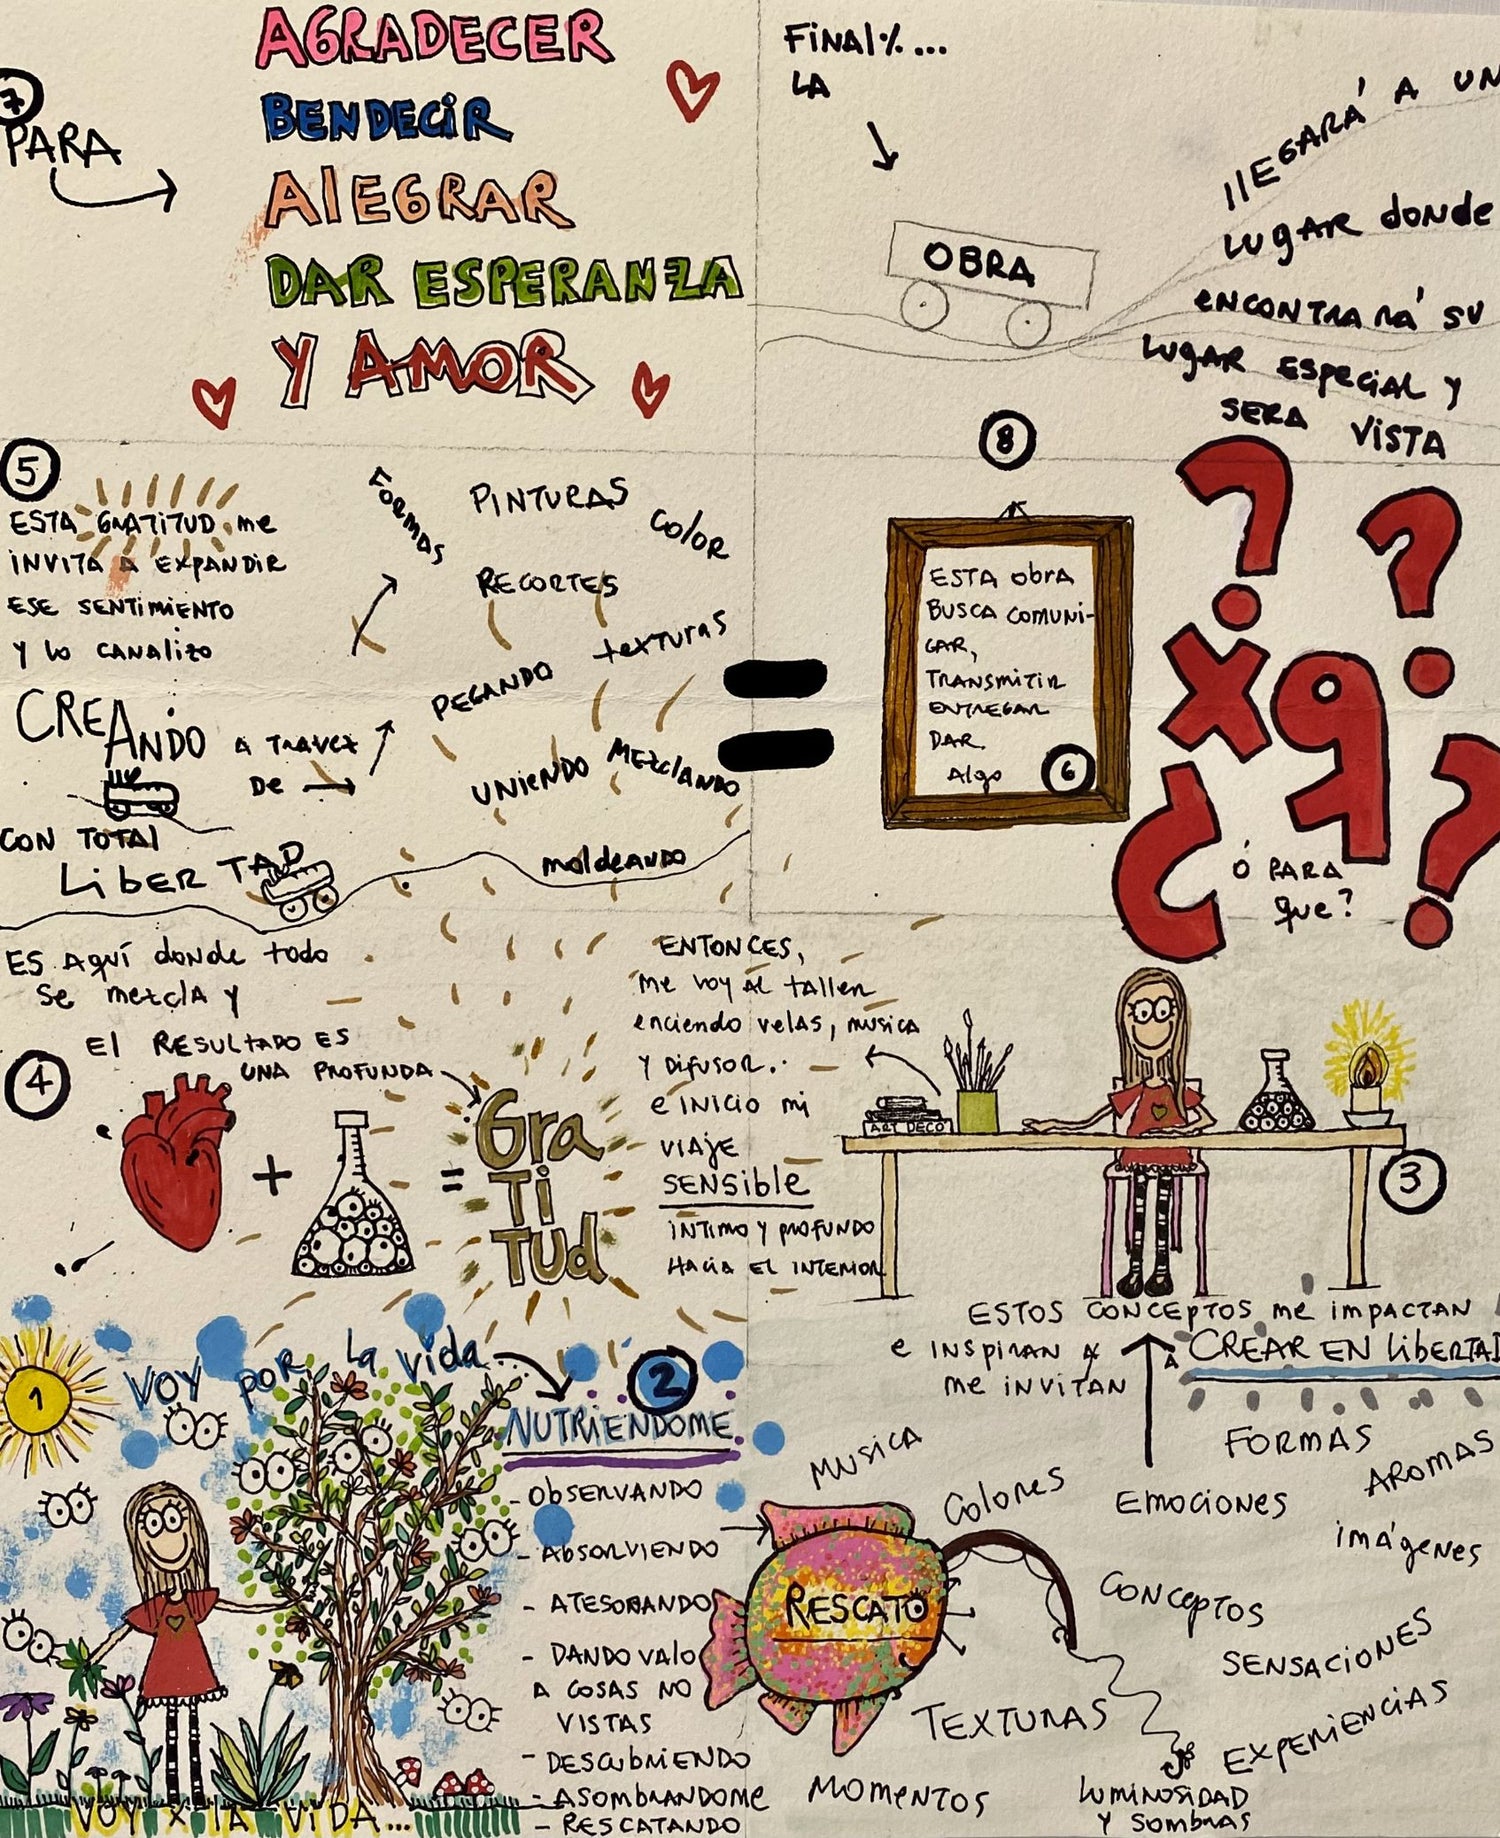 7
PARA
AGRADECER
BENDECIR
AlEGRAR
DAR ESPERANZA
Y AMOR
FiNAl%...
LA
OBRA
llEGARÁ A UN
LUGAR donde
ENCONTRARÁ SU
LUGAR ESPECIAL Y
SERA VISTA
8
5
ESTA GRATITUD me
INVITA A EXPANDIR
ESE SENTIMIENTO
Y LO CANALIZO
CREANDO
A TRAVEZ
DE
CON TOTAL
LiBERTAD
FORMAS
PINTURAS
COLOR
RECORTES
TEXTURAS
PEGANDO
UNIENDO
MEZCLANDO
moldeANDO
ESTA Obra
BUSCA COMUNI-
CAR,
TRANSMITIR
ENTREGAR
DAR
Algo
6
¿ x q ? ? ?
Ó PARA
que?
ES AQUÍ donde todo
Se mezclA Y
El RESULTADO ES
UNA PROFUNDA
4
+
=
Gra
Ti
TUd
ENTONCES,
Me voy AL taller
enciendo velas, musica
Y DIFUSOR..
e INICIO mi
VIAJE
SENSIBLE
INTIMO Y PROFUNDO
HACIA EL INTERIOR
ART DECO
3
ESTOS CONCEPTOS me IMPACTAN
e INSPIRAN Y
me INVITAN
A CREAR EN LIBERTAD
1
VOY POR LA vida
2
NUTRIENDOME
- OBSERVANDO
- ABSORVIENDO
- ATESORANDO
- DANDO VALO
A COSAS NO
VISTAS
- DESCUBRIENDO
- ASOMBRANDOME
- RESCATANDO
VOY X lA VIDA...
RESCATO
MUSICA
COLORES
FORMAS
AROMAS
EMOCIONES
IMÁGENES
CONCEPTOS
SENSACIONES
TEXTURAS
EXPERIENCIAS
MOMENTOS
LUMINOSIDAD
Y SOMBRAS